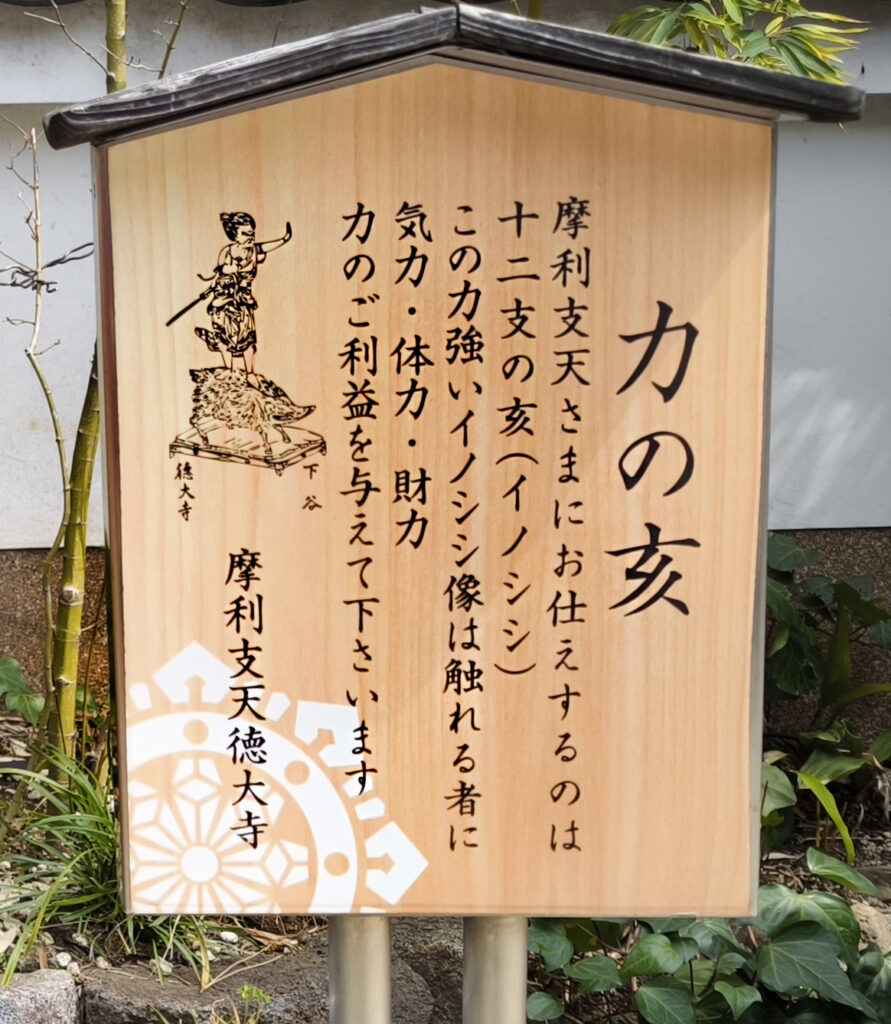 力の亥
摩利支天さまにお仕えするのは
十二支の亥(イノシシ)
この力強いイノシシ像は触れる者に
気力・体力・財力
力のご利益を与えて下さいます
下谷
徳大寺
摩利支天徳大寺